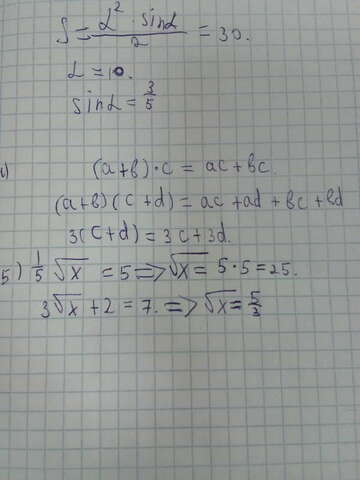 S = L² · sinL / 2 = 30.
L = 10.
sinL = 3/5
(a+b)·c = ac+bc.
(a+b)(c+d) = ac+ad+bc+bd
3(c+d) = 3c+3d.
5) 1/5 √x = 5 => √x = 5·5 = 25.
3√x + 2 = 7. => √x = 5/3